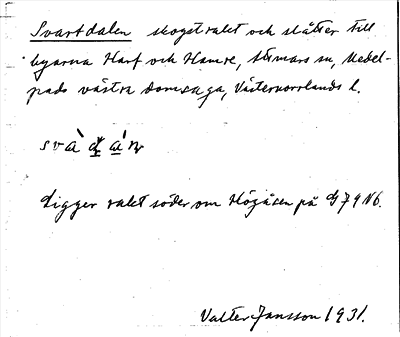 Svartdalen skogstrakt och slåtter till
byarna Harf och Hamre, Stöde sn, Medel-
pads västra domsaga, Västernorrlands l.
Ligger rakt söder om Högåsen på G 79 N6.
Valter Jansson 1931.